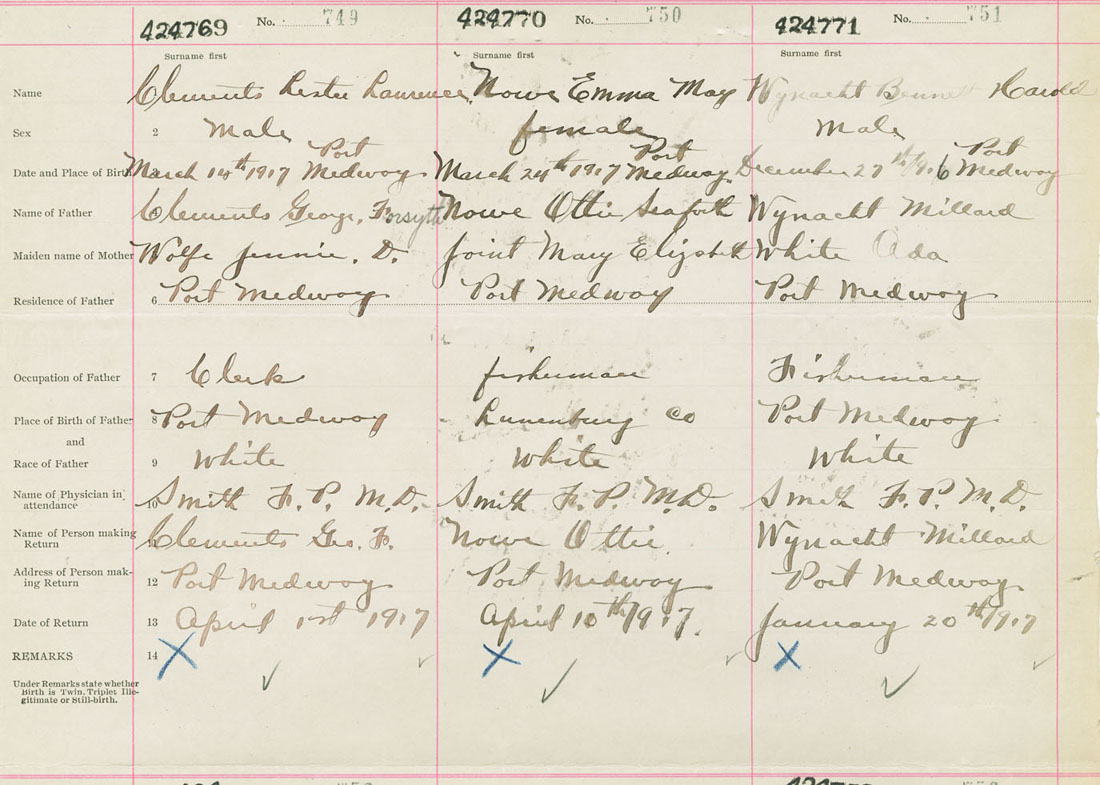 424769 No. 749 424770 No. 750 424771 No. 751
Surname first Surname first Surname first
Name Clements Lester Laurence Nowe Emma May Wynacht Bennett Harold
Sex 2 Male female Male
Date and Place of Birth March 14th 1917 Port Medway March 24th 1917 Port Medway December 27th 1916 Port Medway
Name of Father Clements George, Forsyth Nowe Ottie Seaforth Wynacht Millard
Maiden name of Mother Wolfe Jennie. D. Joint Mary Elizabeth White Ada
Residence of Father 6 Port Medway Port Medway Port Medway
Occupation of Father 7 Clerk fisherman Fisherman
Place of Birth of Father 8 Port Medway Lunenburg Co Port Medway
and
Race of Father 9 White White White
Name of Physician in attendance 10 Smith F. P. M.D. Smith F. P. M.D. Smith F. P. M.D.
Name of Person making Return Clements Geo. F. Nowe Ottie. Wynacht Millard
Address of Person making Return 12 Port Medway Port Medway Port Medway
Date of Return 13 April 1st 1917 April 10th 1917. January 20th 1917
REMARKS 14 X X X
Under Remarks state whether
Birth is Twin, Triplet Ille-
gitimate or Still-birth.